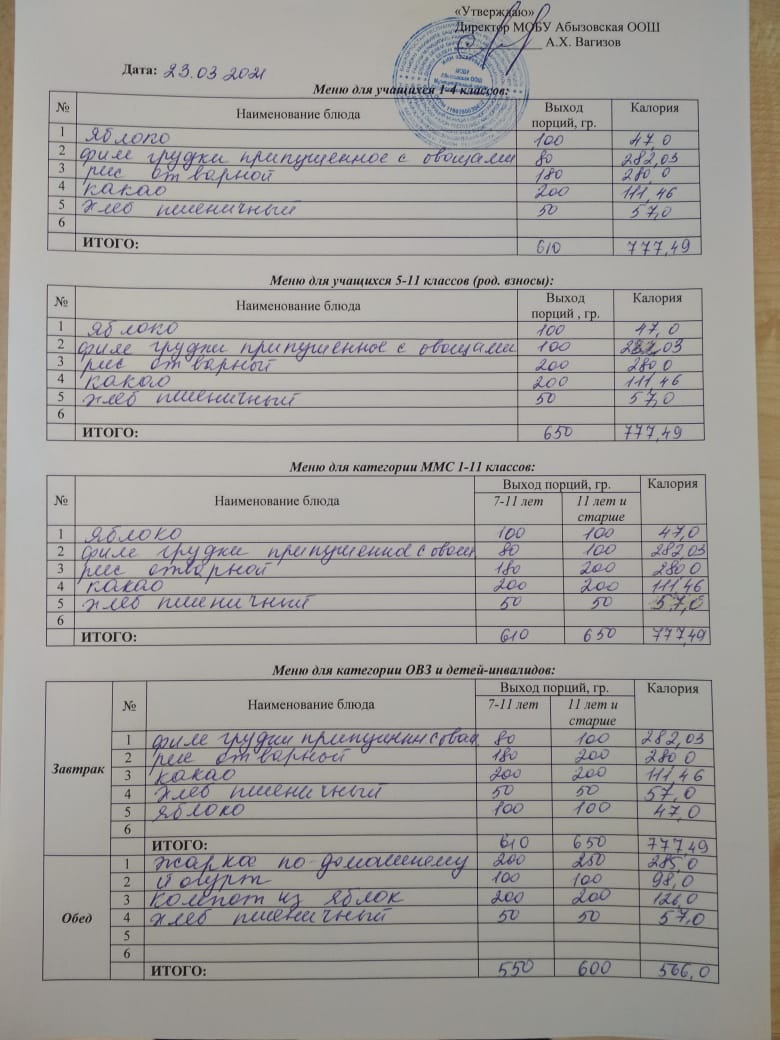 «Утверждаю»
Директор МОБУ Абызовская ООШ
А.Х. Вагизов
Дата: 23.03 2021
Меню для учащихся 1-4 классов:
№ Наименование блюда Выход порций, гр. Калория
1 яблоко 100 47,0
2 филе грудки припущенное с овощами 80 282,03
3 рис отварной 180 280,0
4 какао 200 111,46
5 хлеб пшеничный 50 57,0
6
ИТОГО: 610 777,49
Меню для учащихся 5-11 классов (род. взносы):
№ Наименование блюда Выход порций , гр. Калория
1 яблоко 100 47,0
2 филе грудки припущенное с овощами 100 282,03
3 рис отварной 200 280 0
4 какао 200 111,46
5 хлеб пшеничный 50 57,0
6
ИТОГО: 650 777,49
Меню для категории ММС 1-11 классов:
№ Наименование блюда Выход порций, гр. Калория
7-11 лет 11 лет и старше
1 яблоко 100 100 47,0
2 филе грудки припущенное с 80 100 282,03
3 рис отварной 180 200 280 0
4 какао 200 200 111,46
5 хлеб пшеничный 50 50 57,0
6
ИТОГО: 610 650 777,49
Меню для категории ОВЗ и детей-инвалидов:
№ Наименование блюда Выход порций, гр. Калория
7-11 лет 11 лет и старше
Завтрак
1 филе грудки 80 100 282,03
2 рис отварной 180 200 280 0
3 какао 200 200 111,46
4 хлеб пшеничный 50 50 57,0
5 яблоко 100 100 47,0
6
ИТОГО: 610 650 777,49
Обед
1 жаркое по-домашнему 200 250 285,0
2 йогурт 100 100 98,0
3 компот из яблок 200 200 126,0
4 хлеб пшеничный 50 50 57,0
5
6
ИТОГО: 550 600 566,0